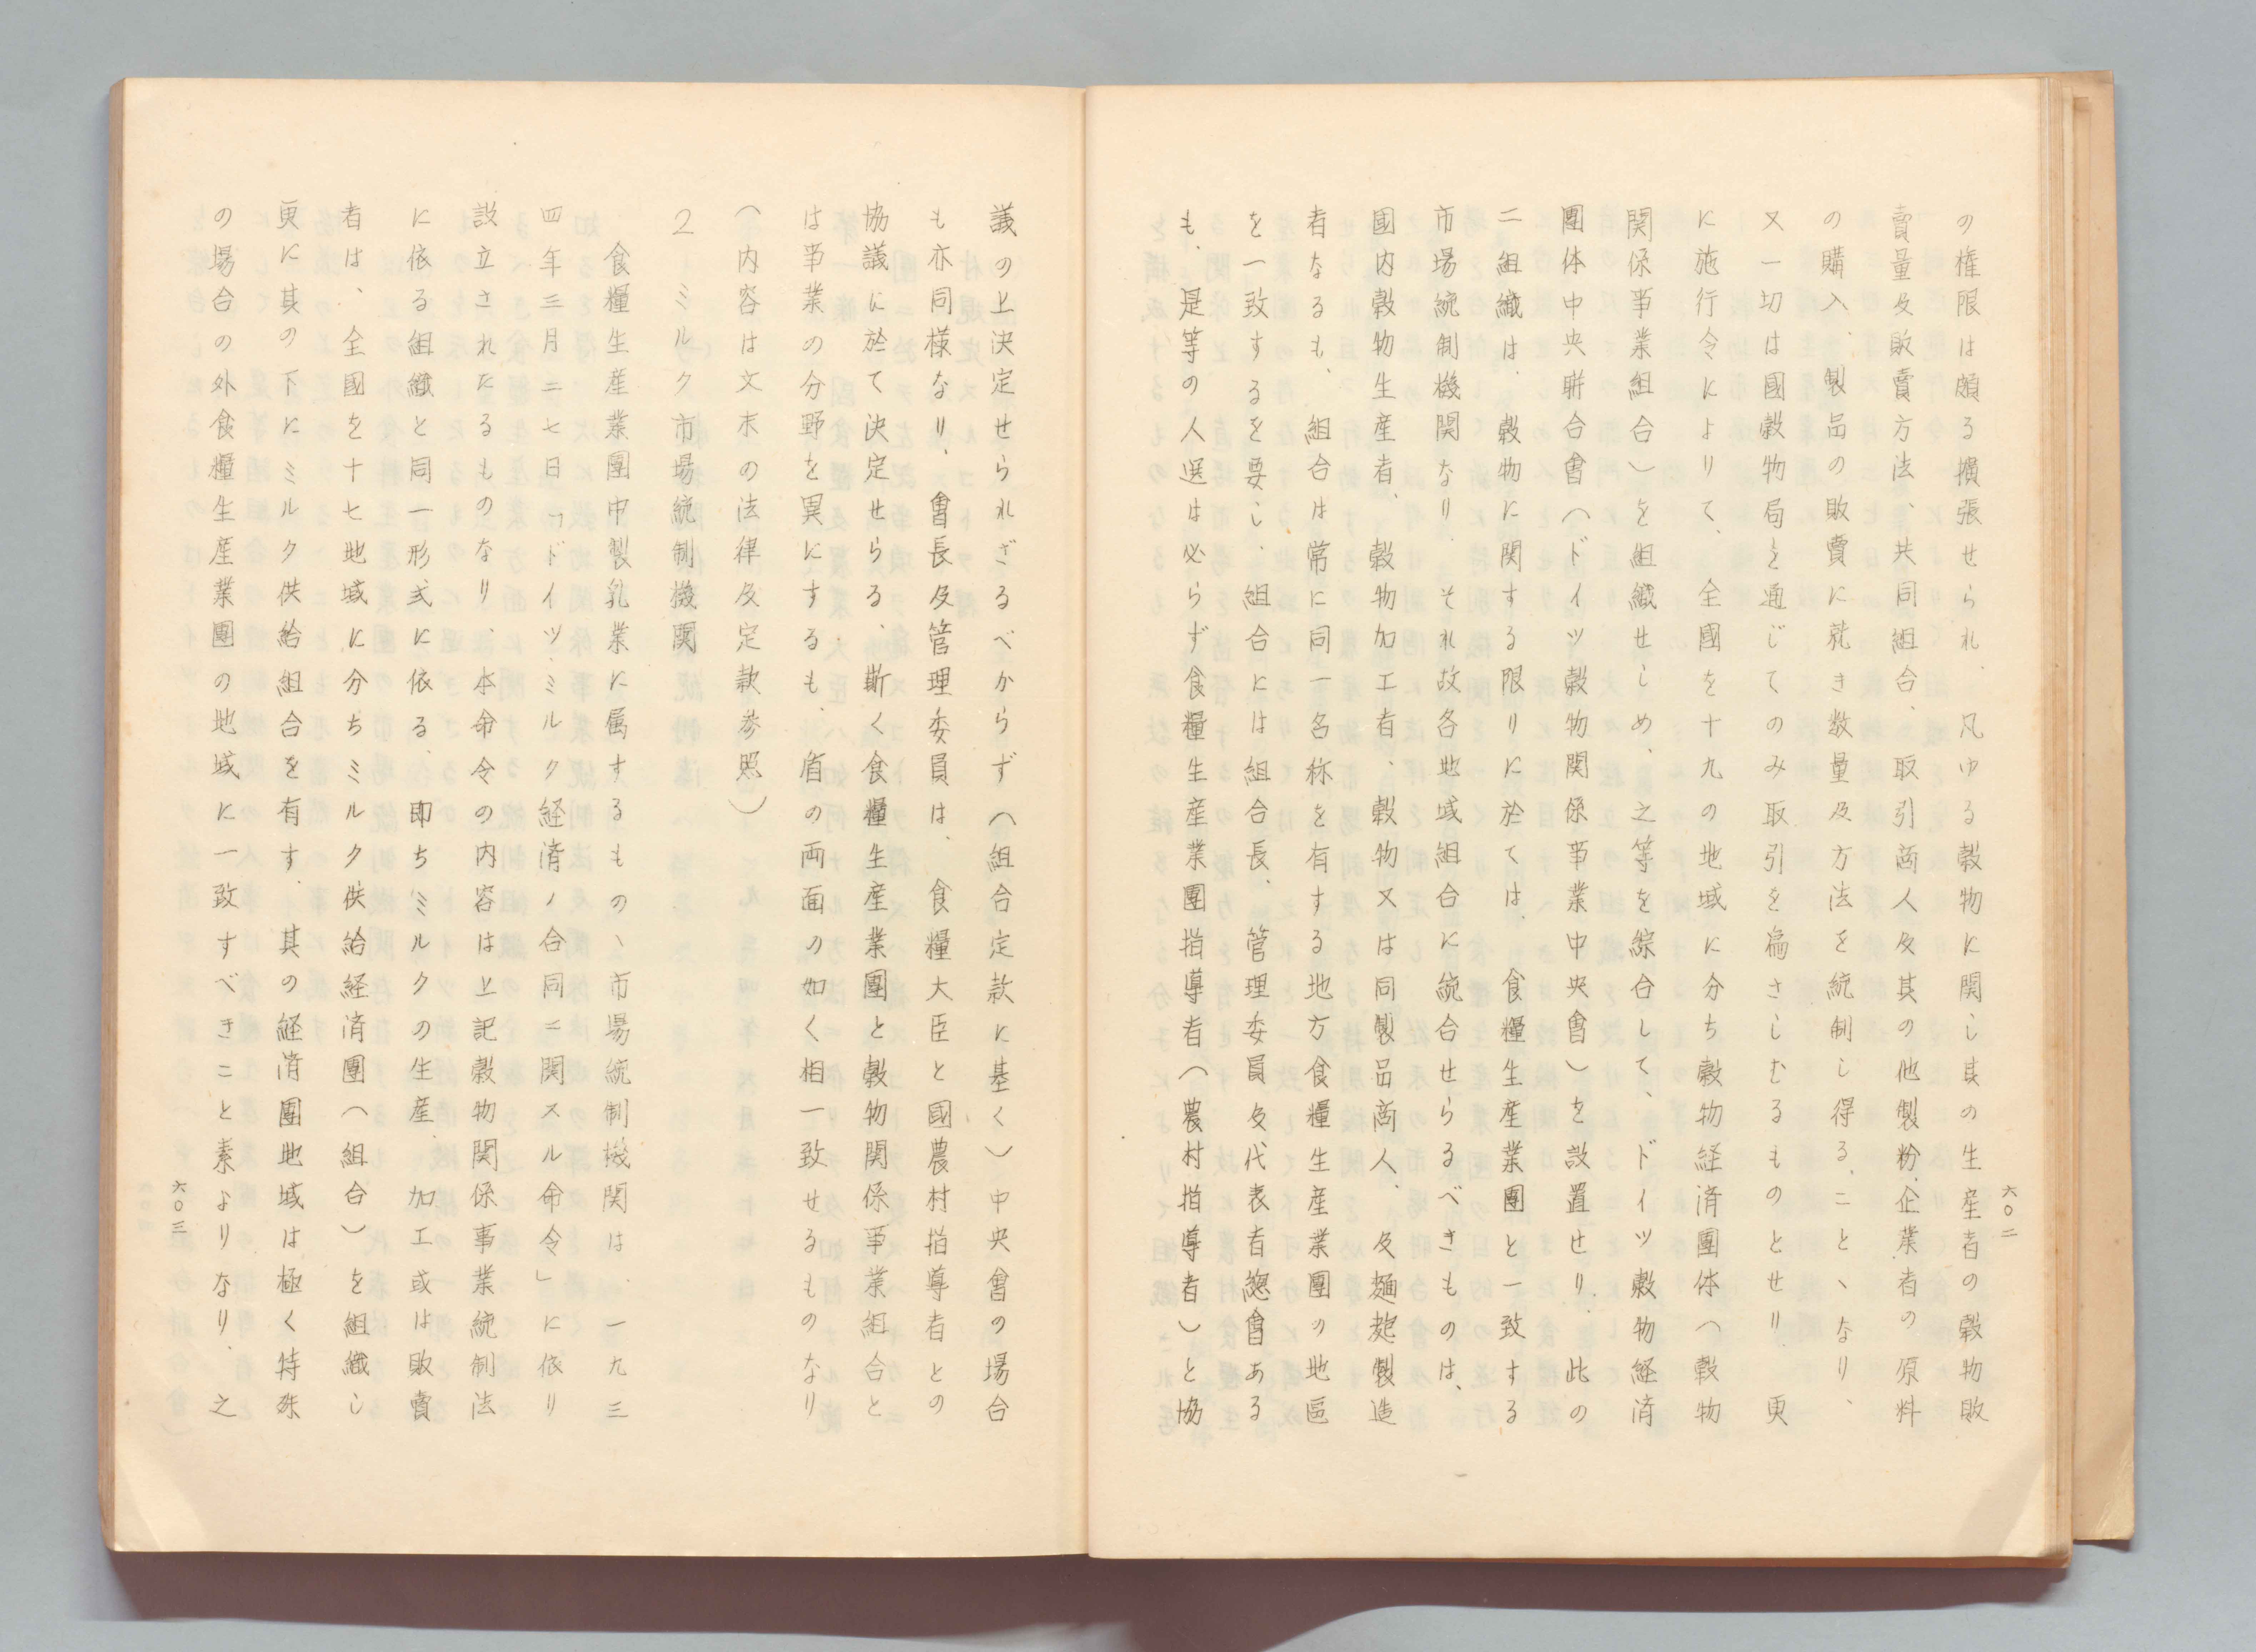 六〇二
の権限は頗る擴張せられ、凡ゆる穀物に関し其の生産者の穀物販
賣量及販賣方法、共同組合、取引商人及其の他製粉企業者の原料
の購入、製品の販賣に就き数量及方法を統制し得る、ことゝなり、
又一切は國穀物局を通じてのみ取引を為さしむるものとせり 更
に施行令によりて、全國を十九の地域に分ち穀物経済團体（穀物
関係事業組合）を組織せしめ、之等を綜合して、ドイツ穀物経済
團体中央聨合會（ドイツ穀物関係事業中央會）を設置せり、此の
二組織は、穀物に関する限りに於ては、食糧生産業團と一致する
市場統制機関なり、それ故各地域組合に統合せらるべきものは、
國内穀物生産者、穀物加工者、穀物又は同製品商人、及麵麭製造
者なるも、組合は常に同一名称を有する地方食糧生産業團の地區
を一致するを要し、組合には組合長、管理委員及代表者總會ある
も、是等の人選は必らず食糧生産業團指導者（農村指導者）と協
議の上決定せられざるべからず（組合定款に基く）中央會の場合
も亦同様なり、會長及管理委員は、食糧大臣と國農村指導者との
協議に於て決定せらる、斯く食糧生産業團と穀物関係事業組合と
は事業の分野を異にするも、盾の両面の如く相一致せるものなり
（内容は文末の法律及定款参照）
2 ミルク市場統制機関
食糧生産業團中製乳業に属するものゝ市場統制機関は、一九三
四年三月二七日「ドイツ、ミルク経済ノ合同ニ関スル命令」に依り
設立されたるものなり、本命令の内容は上記穀物関係事業統制法
に依る組織と同一形式に依る、即ちミルクの生産、加工或は販賣
者は、全國を十七地域に分ちミルク供給経済團（組合）を組織し
更に其の下にミルク供給組合を有す、其の経済團地域は極く特殊
の場合の外食糧生産業團の地域に一致すべきこと素よりなり、之
六〇三